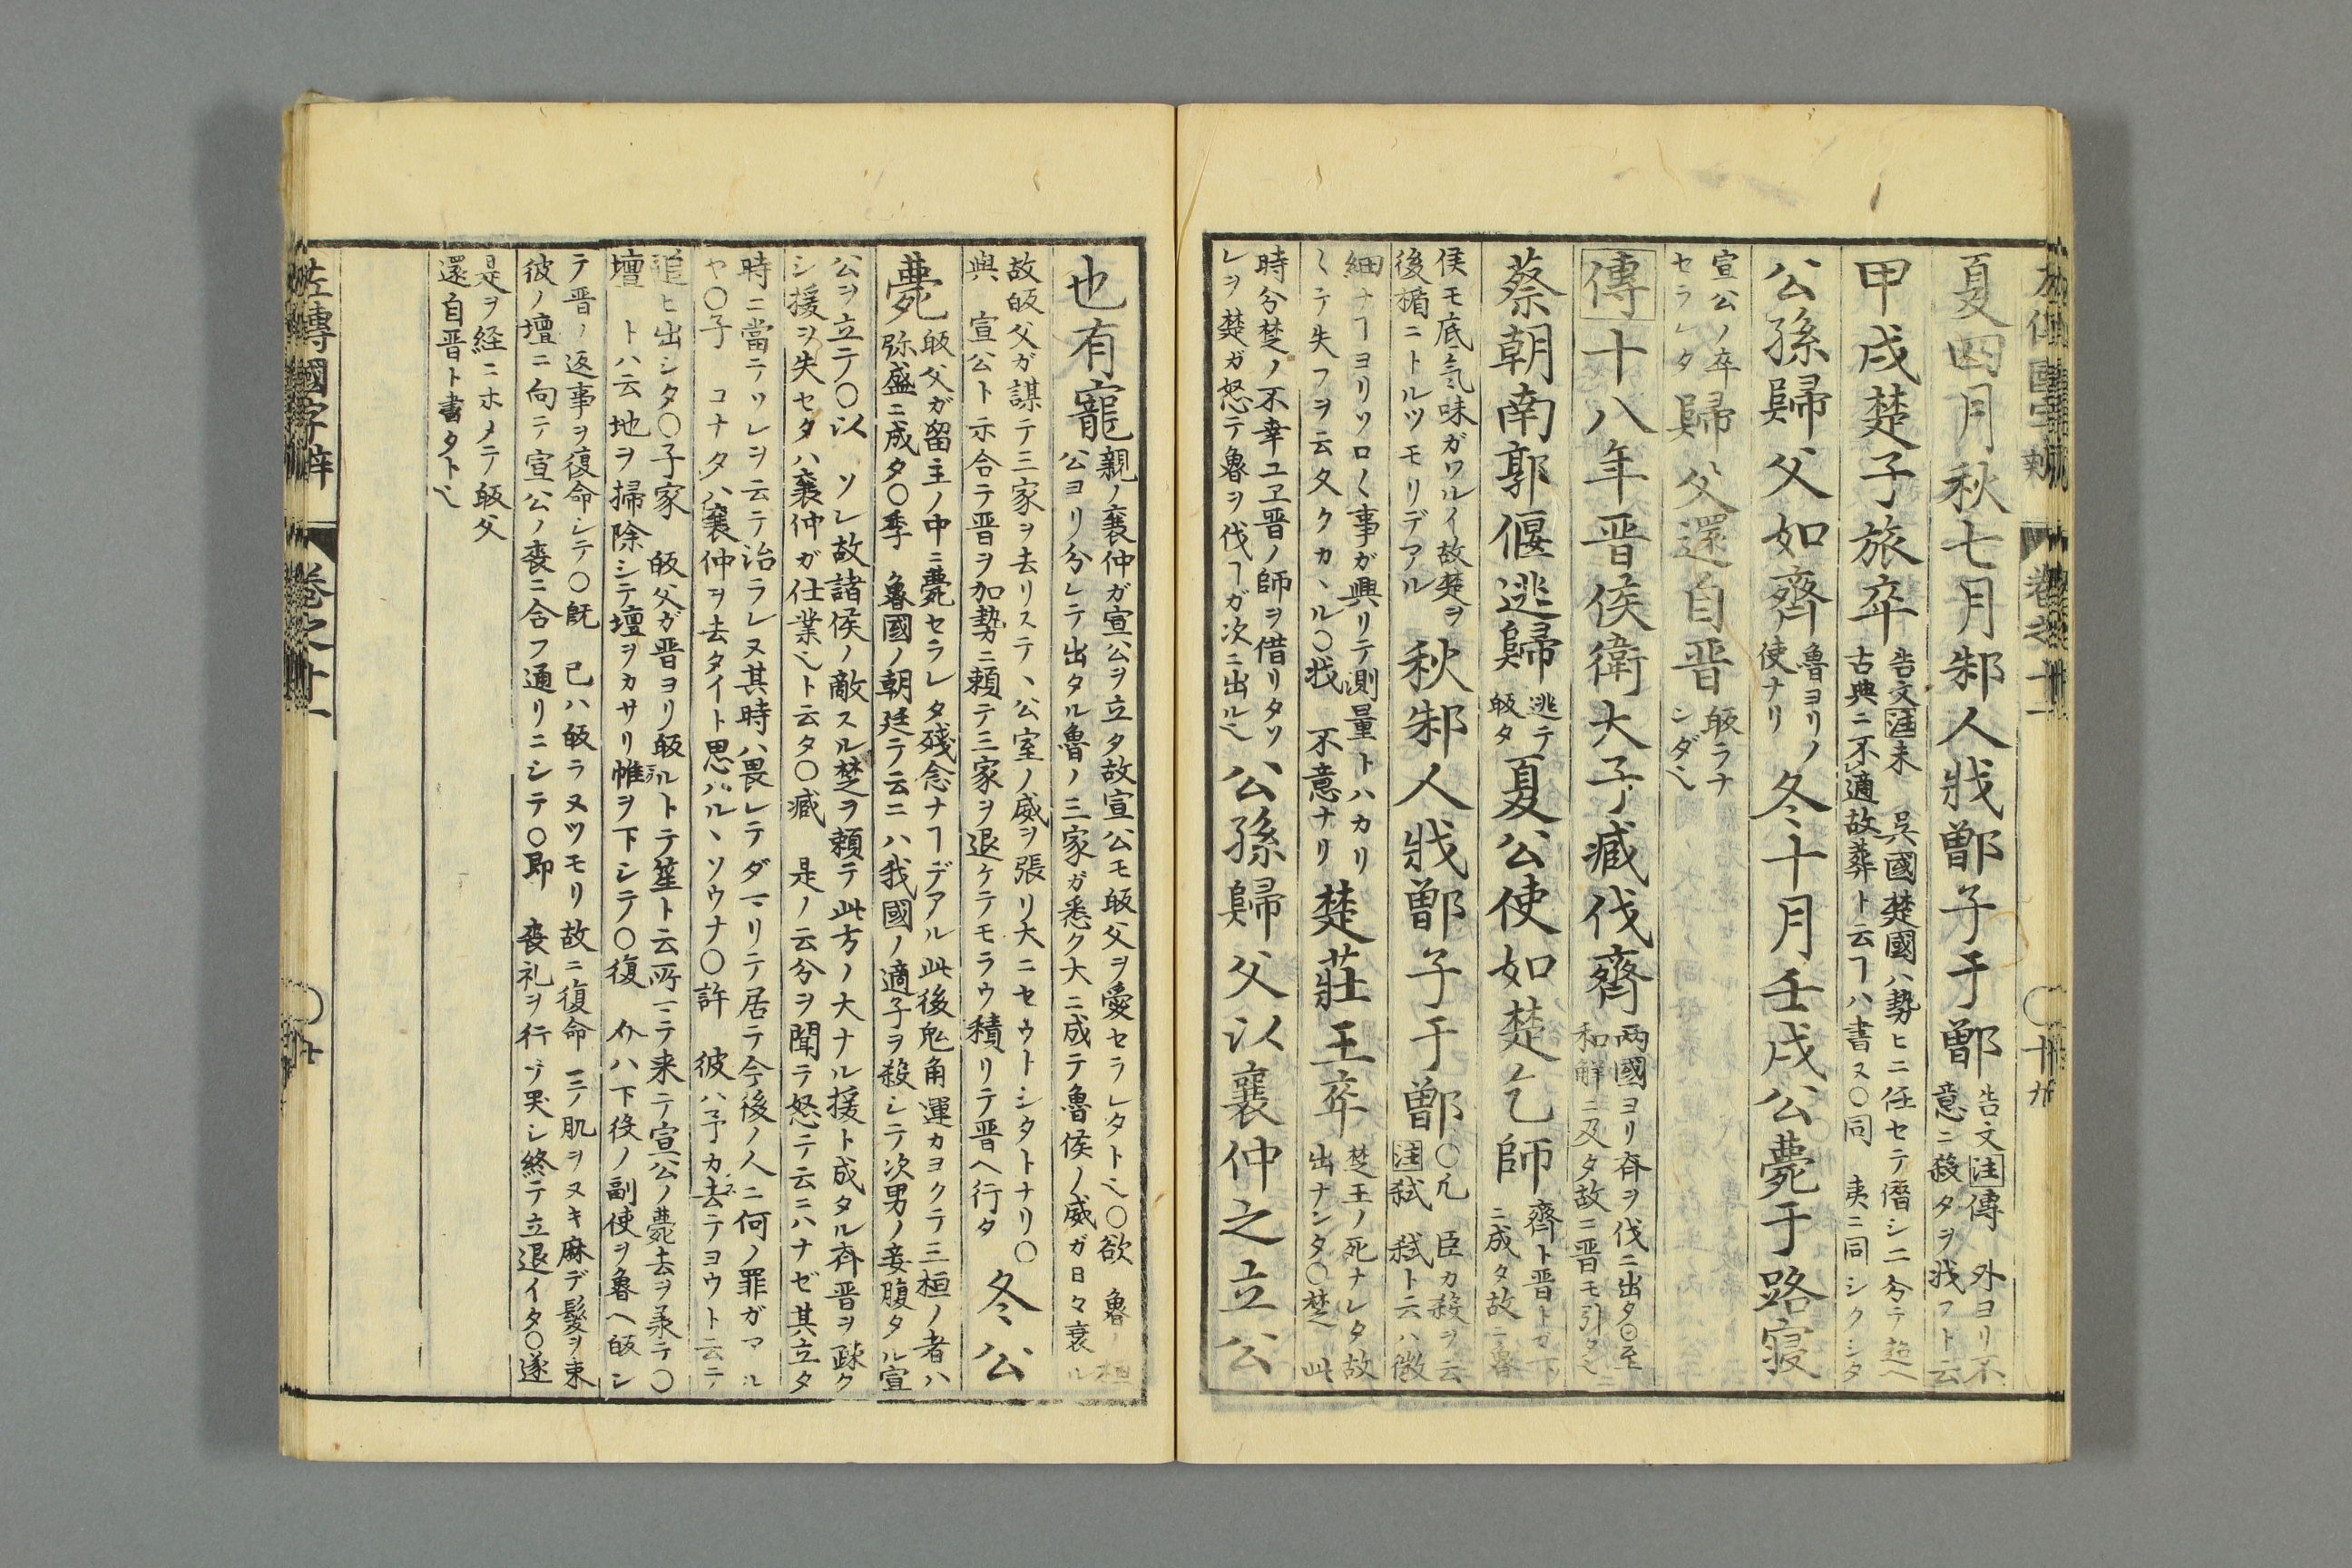 夏四月秋七月邾人戕鄫子于鄫 告文注傳 外ヨリ不
意ニ殺タヲ戕フト云
甲戌楚子旅卒 告文注未 呉國楚國ハ勢ヒニ任セテ僭シ二分テ
古典ニ不適故葬ト云ヿハ書ヌ〇同 夷ニ同シクシタ
公孫歸父如齊 魯ヨリノ
使ナリ
冬十月壬戌公薨于路寝
宣公ノ卒
セラレタ
歸父還自晋 皈ラナ
ンダ也
傳十八年晋侯衛大子臧伐齊 两國ヨリ斉ヲ伐ニ出タ〇至
和解ニ及タ故ニ晋モ引タ也
蔡朝南郭偃逃歸 逃テ
皈タ
夏公使如楚乞師 齊ト晋トガ下
ニ成タ故ニ魯
侯モ底気味ガワルイ故楚ヲ
後楯ニトルツモリデアル
秋邾人戕鄫子于鄫 〇凢 臣カ殺ヲ云
注弑 弑ト云ハ微
細ナヿヨリソロ〱事ガ興リテ測量トハカリ
〱テ失フヲ云タクカヽル〇戕 不意ナリ
楚荘王卒 楚王ノ死ナレタ故
出ナンタ〇楚 此
時分楚ノ不幸ユヱ晋ノ師ヲ借リタソ
レヲ楚ガ怒テ魯ヲ伐ヿガ次ニ出ル也
公孫歸父以襄仲之立公
也有寵 親ノ襄仲ガ宣公ヲ立タ故宣公モ皈父ヲ愛セラレタト也〇欲 魯ノ桓
公ヨリ分レテ出タル魯ノ三家ガ悉ク大ニ成テ魯侯ノ威ガ日々衰ル
故皈父ガ謀テ三家ヲ去リステヽ公室ノ威ヲ張リ大ニセウトシタトナリ〇
與 宣公ト示合テ晋ヲ加勢ニ頼テ三家ヲ退ケテモラウ積リテ晋ヘ行タ
冬公
薨 皈父ガ留主ノ中ニ薨セラレタ殘念ナヿデアル此後鬼角運カヨクテ三桓ノ者ハ
弥盛ニ成タ〇季 魯國ノ朝廷テ云ニハ我國ノ適子ヲ殺シテ次男ノ妾腹タル宣
公ヲ立テ〇以 ソレ故諸侯ノ敵スル楚ヲ頼テ此方ノ大ナル援ト成タル斉晋ヲ疎ク
シ援ヲ失セタハ襄仲ガ仕業也ト云タ〇臧 是ノ云分ヲ聞テ怒テ云ニハナゼ其立タ
時ニ當テソレヲ云テ治ラレヌ其時ハ畏レテダマリテ居テ今後ノ人ニ何ノ罪ガマル
ヤ〇子 コナタハ襄仲ヲ去タイト思ハルヽソウナ〇許 彼ハ予カ去テヨウト云テ
追ヒ出シタ〇子家 皈父ガ晋ヨリ皈ルトテ笙ト云所マテ来テ宣公ノ薨去ヲ承テ〇
壇 トハ云地ヲ掃除シテ壇ヲカサリ帷ヲ下シテ〇復 介ハ下役ノ副使ヲ魯ヘ皈シ
テ晋ノ返事ヲ復命シテ〇既 已ハ皈ラヌツモリ故ニ復命 ノ肌ヲヌキ麻デ髪ヲ束
彼ノ壇ニ向テ宣公ノ喪ニ合フ通リニシテ〇即 喪礼ヲ行ヅ哭シ終テ立退イタ〇遂
是ヲ経ニホメテ皈父
還自晋ト書タト也
左傳國字辯 巻之十一